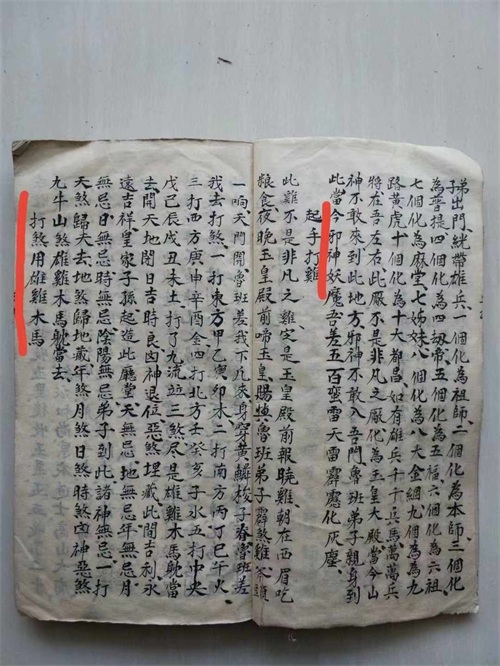 弟子出門統帶雄兵一個化為祖師二個化為本師三個化
為普提四個化為四明帝五個化為五福六個化為六祖
七個化為麻堂七姊妹八個化為八大金網九個為為九
路黃虎十個化為十大都昌如有雄兵千千兵馬萬萬兵
將在吾左右此厭不是非凡之厭化為玉皇大殿當今山
神不敢來到此地方邪神不敢入吾門魯班弟子親身到
此當今邪神妖魔吾差五百蠻雷天雷霹靂化灰塵
起手打雞
此雞不是非凡之雞定是玉皇殿前報曉雞朝在西眉吃
粮食夜晚玉皇殿前啼玉皇賜與魯班弟子霹煞雞斧頭
一响天門開魯班差我下凡來身穿黃幃梭子衣魯班差
我去打煞一打東方甲乙寅卯木二打南方丙丁巳午火
三打西方庚申辛酉金四打北方壬癸亥子水五打中央
戊己辰戌丑未土打了九流立三煞尽是雄雞木馬䭾當
去開天地開日吉時良凶神退位惡煞埋藏此間吉利永
遠吉祥皇家子孫起造此廳堂天無忌地無忌年無忌月
無忌日無忌時無忌陰陽無忌弟子到此諸神無忌一打
天煞歸天去地煞歸地藏年煞月煞日煞時煞凶神惡煞
九牛山煞雄雞木馬䭾當去
打煞用雄雞木馬